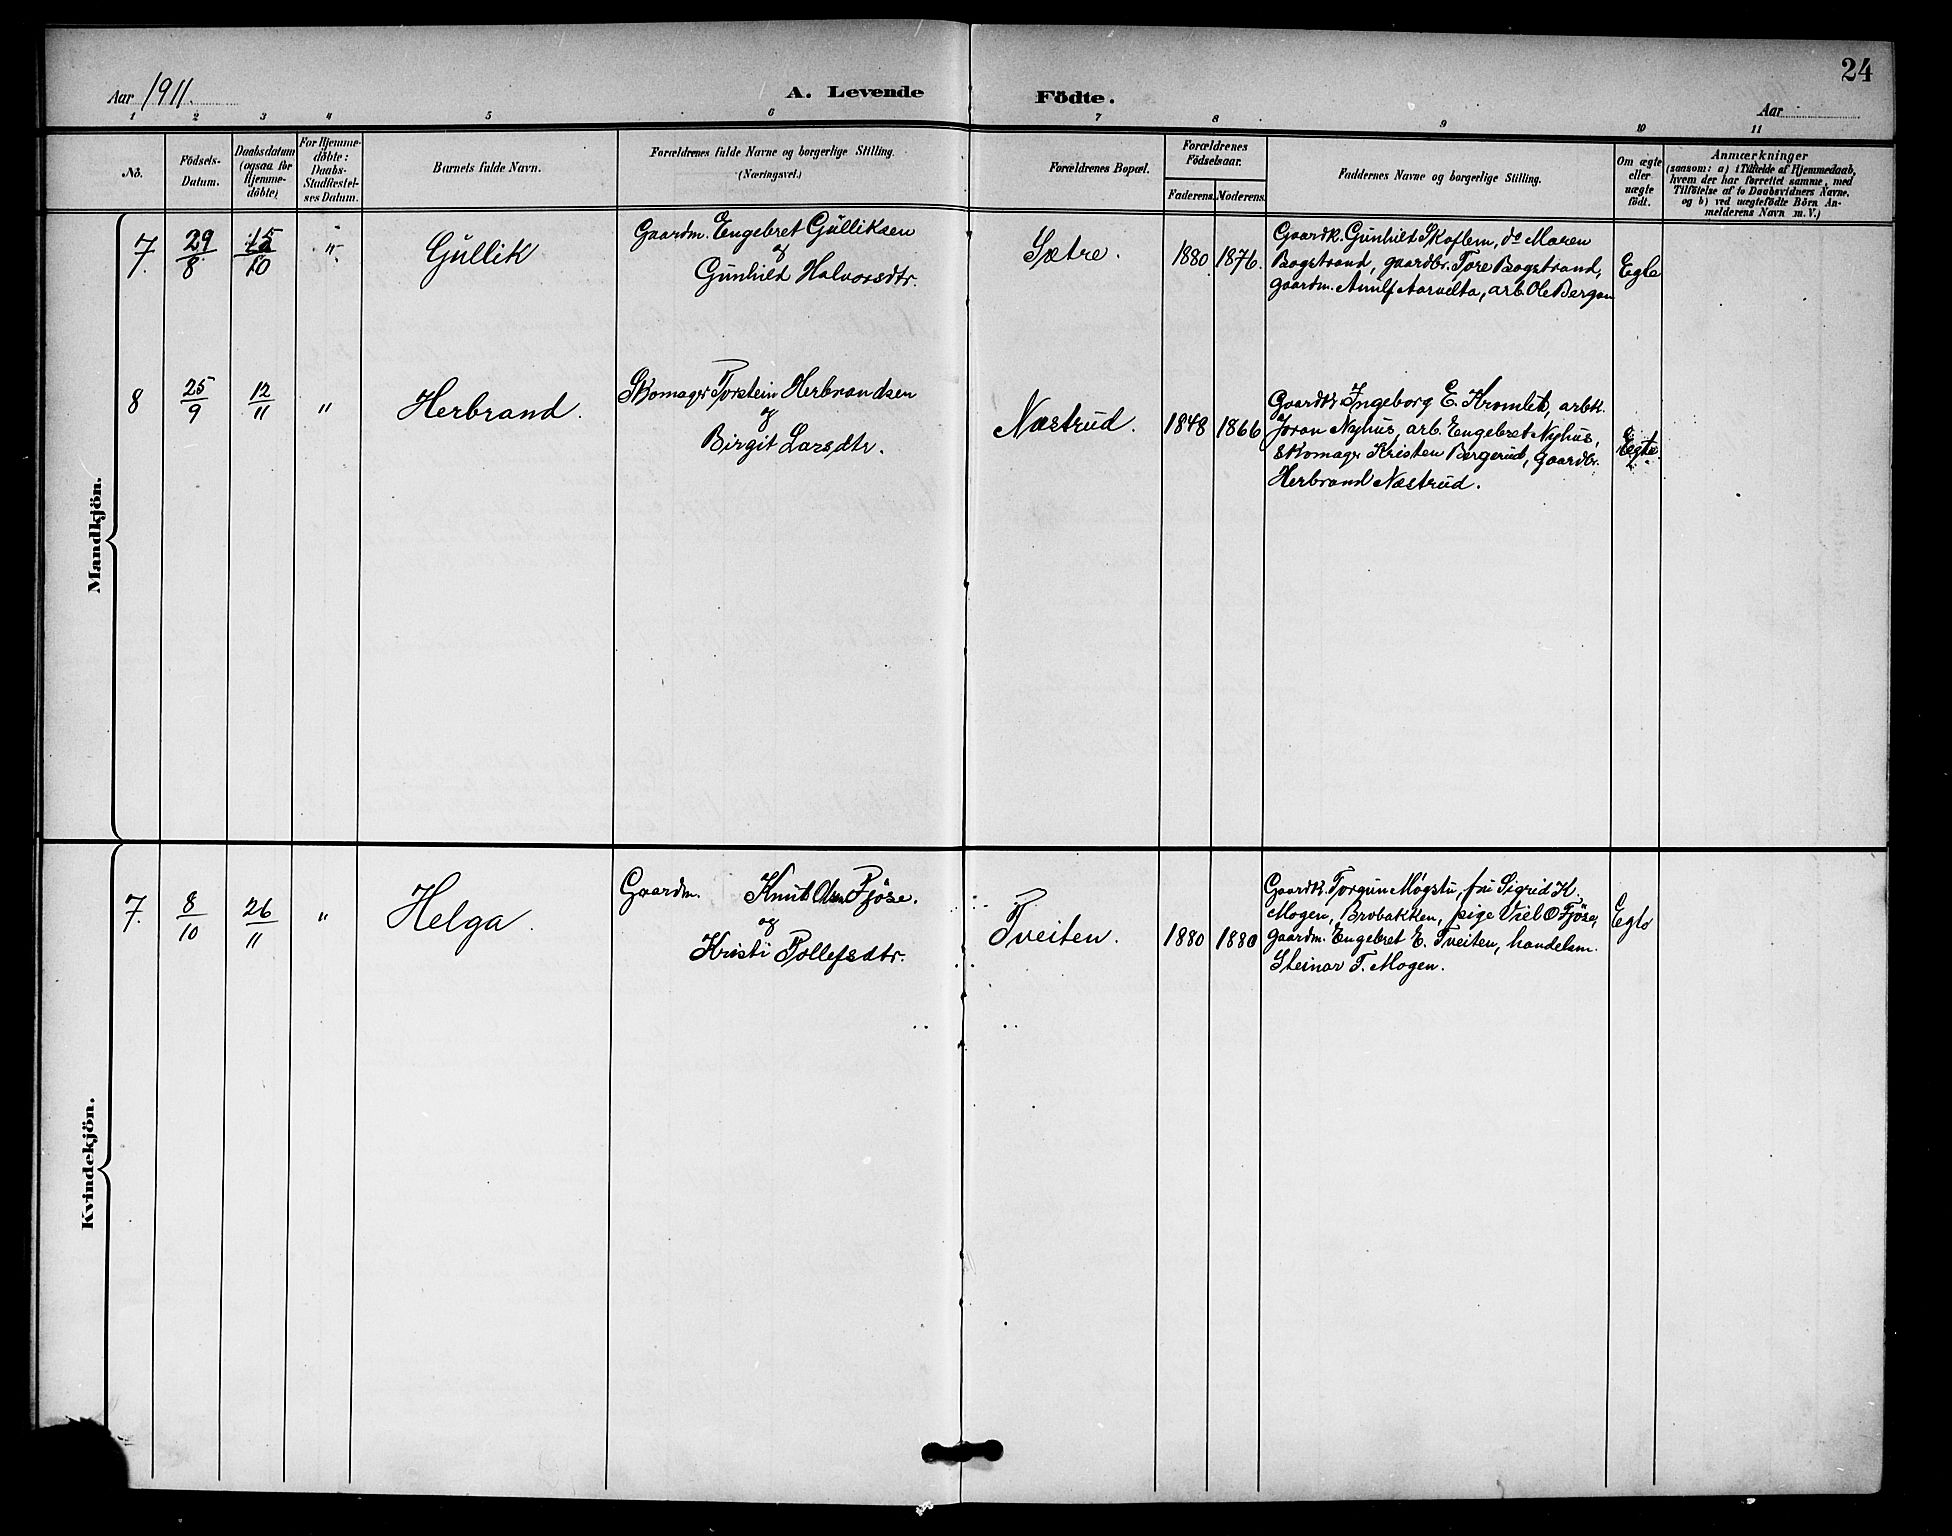 24
Aar 1911.
A. Levende Födte.
Aar
1 2 3 4 5 6 7 8 9 10 11
No.
Födsels-
Datum.
Daabsdatum
(ogsaa for
Hjemme-
döbte)
For Hjemme-
döbte:
Daabs-
Stadfæstel-
ses Datum.
Barnets fulde Navn.
Forældrenes fulde Navne og borgerlige Stilling.
(Næringsvei.)
Forældrenes Bopæl.
Forældrenes
Födselsaar.
Faderens. Moderens.
Faddernes Navne og borgerlige Stilling.
Om ægte
eller
uægte
födt.
Anmærkninger
(saasom: a) i Tilfælde af Hjemmedaab,
hvem der har forrettet samme, med
Tilföielse af to Daabsvidners Navne.
og b) ved uægtefödte Börn An-
melderens Navn m. V.)
Mandkjön.
7. 29/8 15/10 " Gullik
Gaardm. Engebret Gulliksen
og
Gunhild Halvorsdtr.
Sætre. 1880 1876.
Gaardk. Gunhild Skaflem, do Maren
Bagstrand, gaardbr. Tore Bagstrand,
gaardm. Arnulf Aarvelta, arb. Ole Bergan
Egte
8 25/9 12/11 " Herbrand.
Skomager Torstein Herbrandsen
og
Birgit Larsdtr.
Næstrud. 1848 1866
Gaardk. Ingeborg E. Kromlit, arbk.
Joran Nyhus, arb. Engebret Nyhus,
skomager Kristen Bergerud, gaardbr.
Herbrand Næstrud.
Egte
Kvindekjön.
7. 8/10 26/11 " Helga.
Gaardm. Knut Olsen Fjöse.
og
Kristi Tollefsdtr.
Tveiten. 1880 1880
Gaardk. Torgun Mogstu, fru Sigrid K.
Mogen, Brobakken, pige Viel O Fjöse,
gaardm. Engebret E. Tveiten, handelsm.
Steinar T. Mogen.
Egte